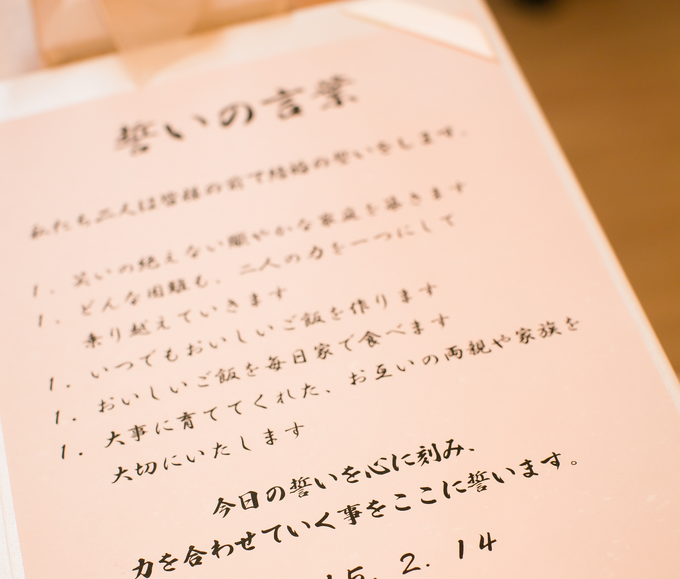 誓いの言葉
私たち二人は皆様の前で結婚の誓いをします。
1. 笑いの絶えない賑やかな家庭を築きます
1. どんな困難も、二人の力を一つにして
乗り越えていきます
1. いつでもおいしいご飯を作ります
1. おいしいご飯を毎日家で食べます
1. 大事に育ててくれた、お互いの両親や家族を
大切にいたします
今日の誓いを心に刻み、
力を合わせていく事をここに誓います。
15. 2. 14